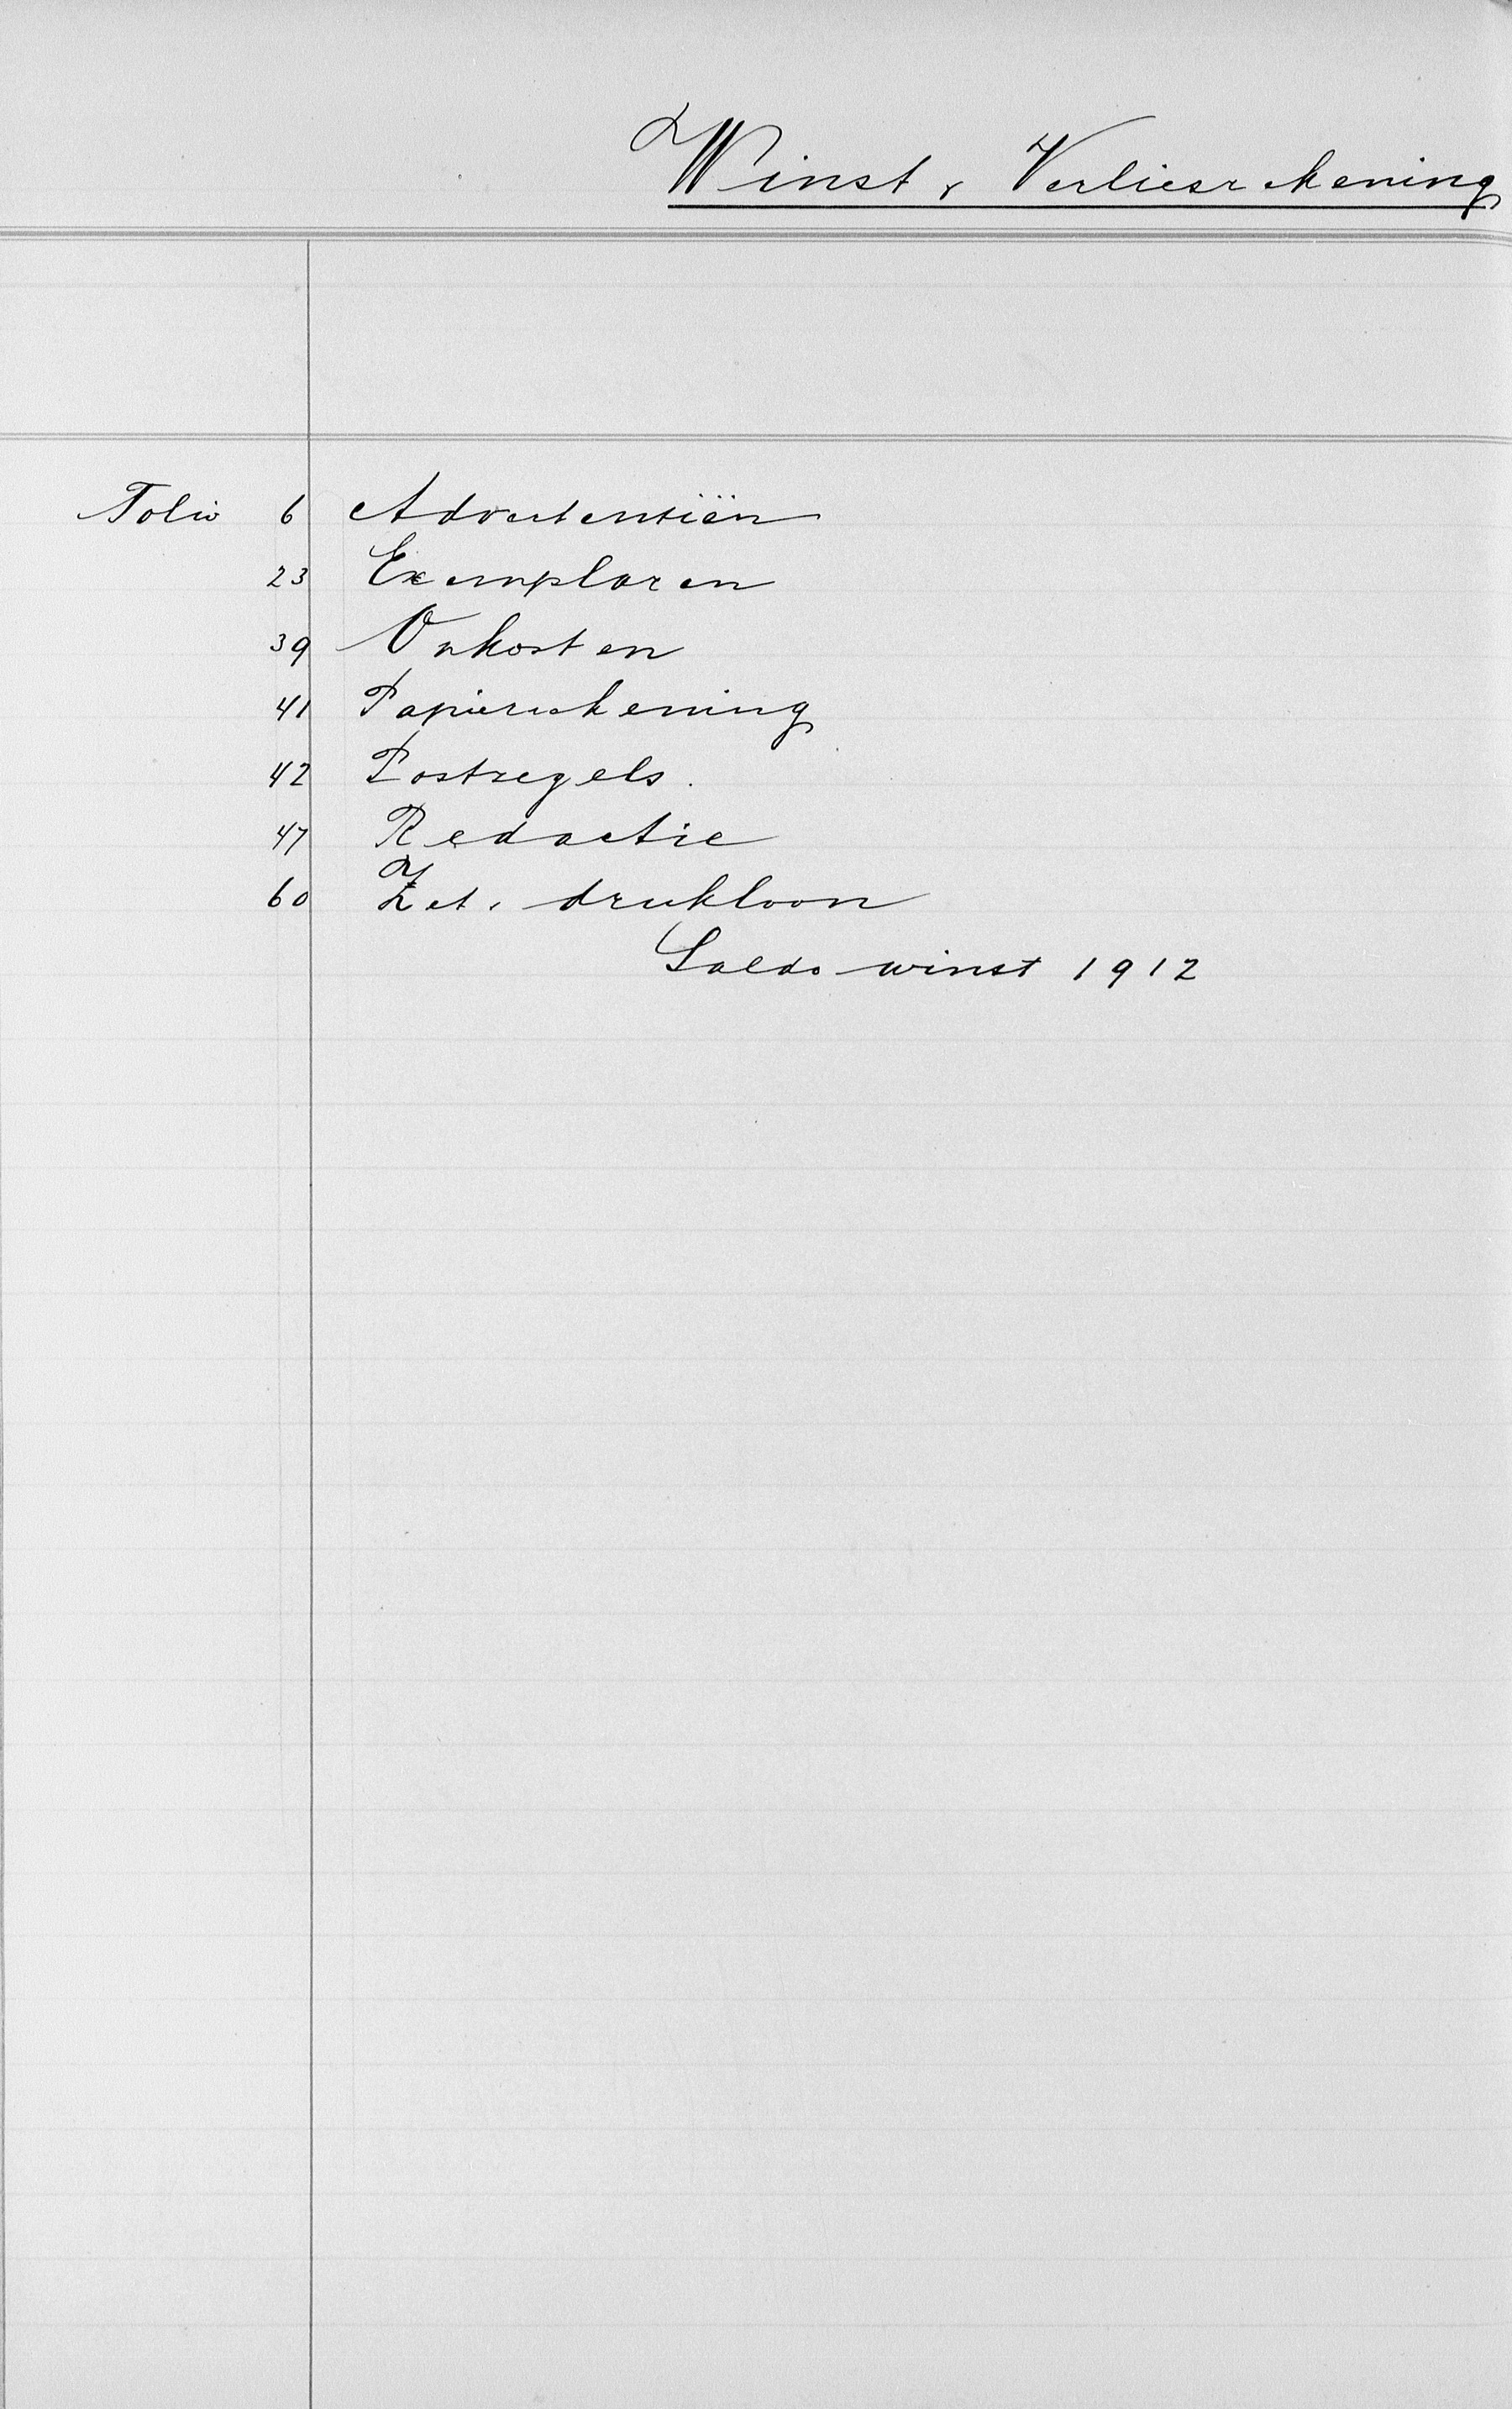 Winst & Verliesrekening
Folio 6 Advertentiën
23 Exemplaren
39 Onkosten
41 Papierrekening
42 Postzegels.
47 Redactie
60 Zet & drukloon
Saldo winst 1912